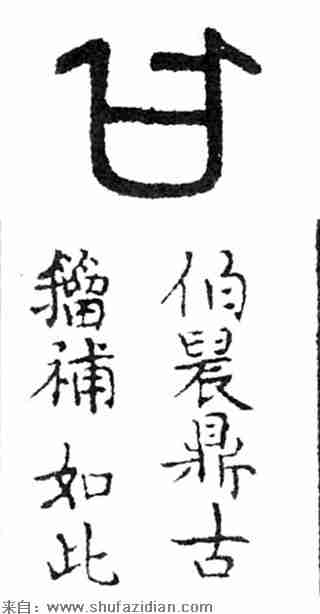 甘
伯晨鼎古
籀補如此
来自：www.shufazidian.com